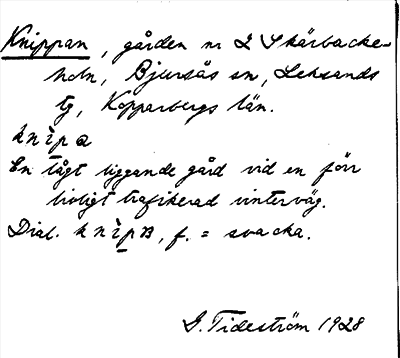 Knippan, gården nr 2 Skärbacke-
holn, Bjursås sn, Leksands
tg, Kopparbergs län.
knìpa
En lågt liggande gård vid en förr
livligt trafikerad vinterväg.
Dial. knìpB, f. = svacka.
G. Tideström 1928